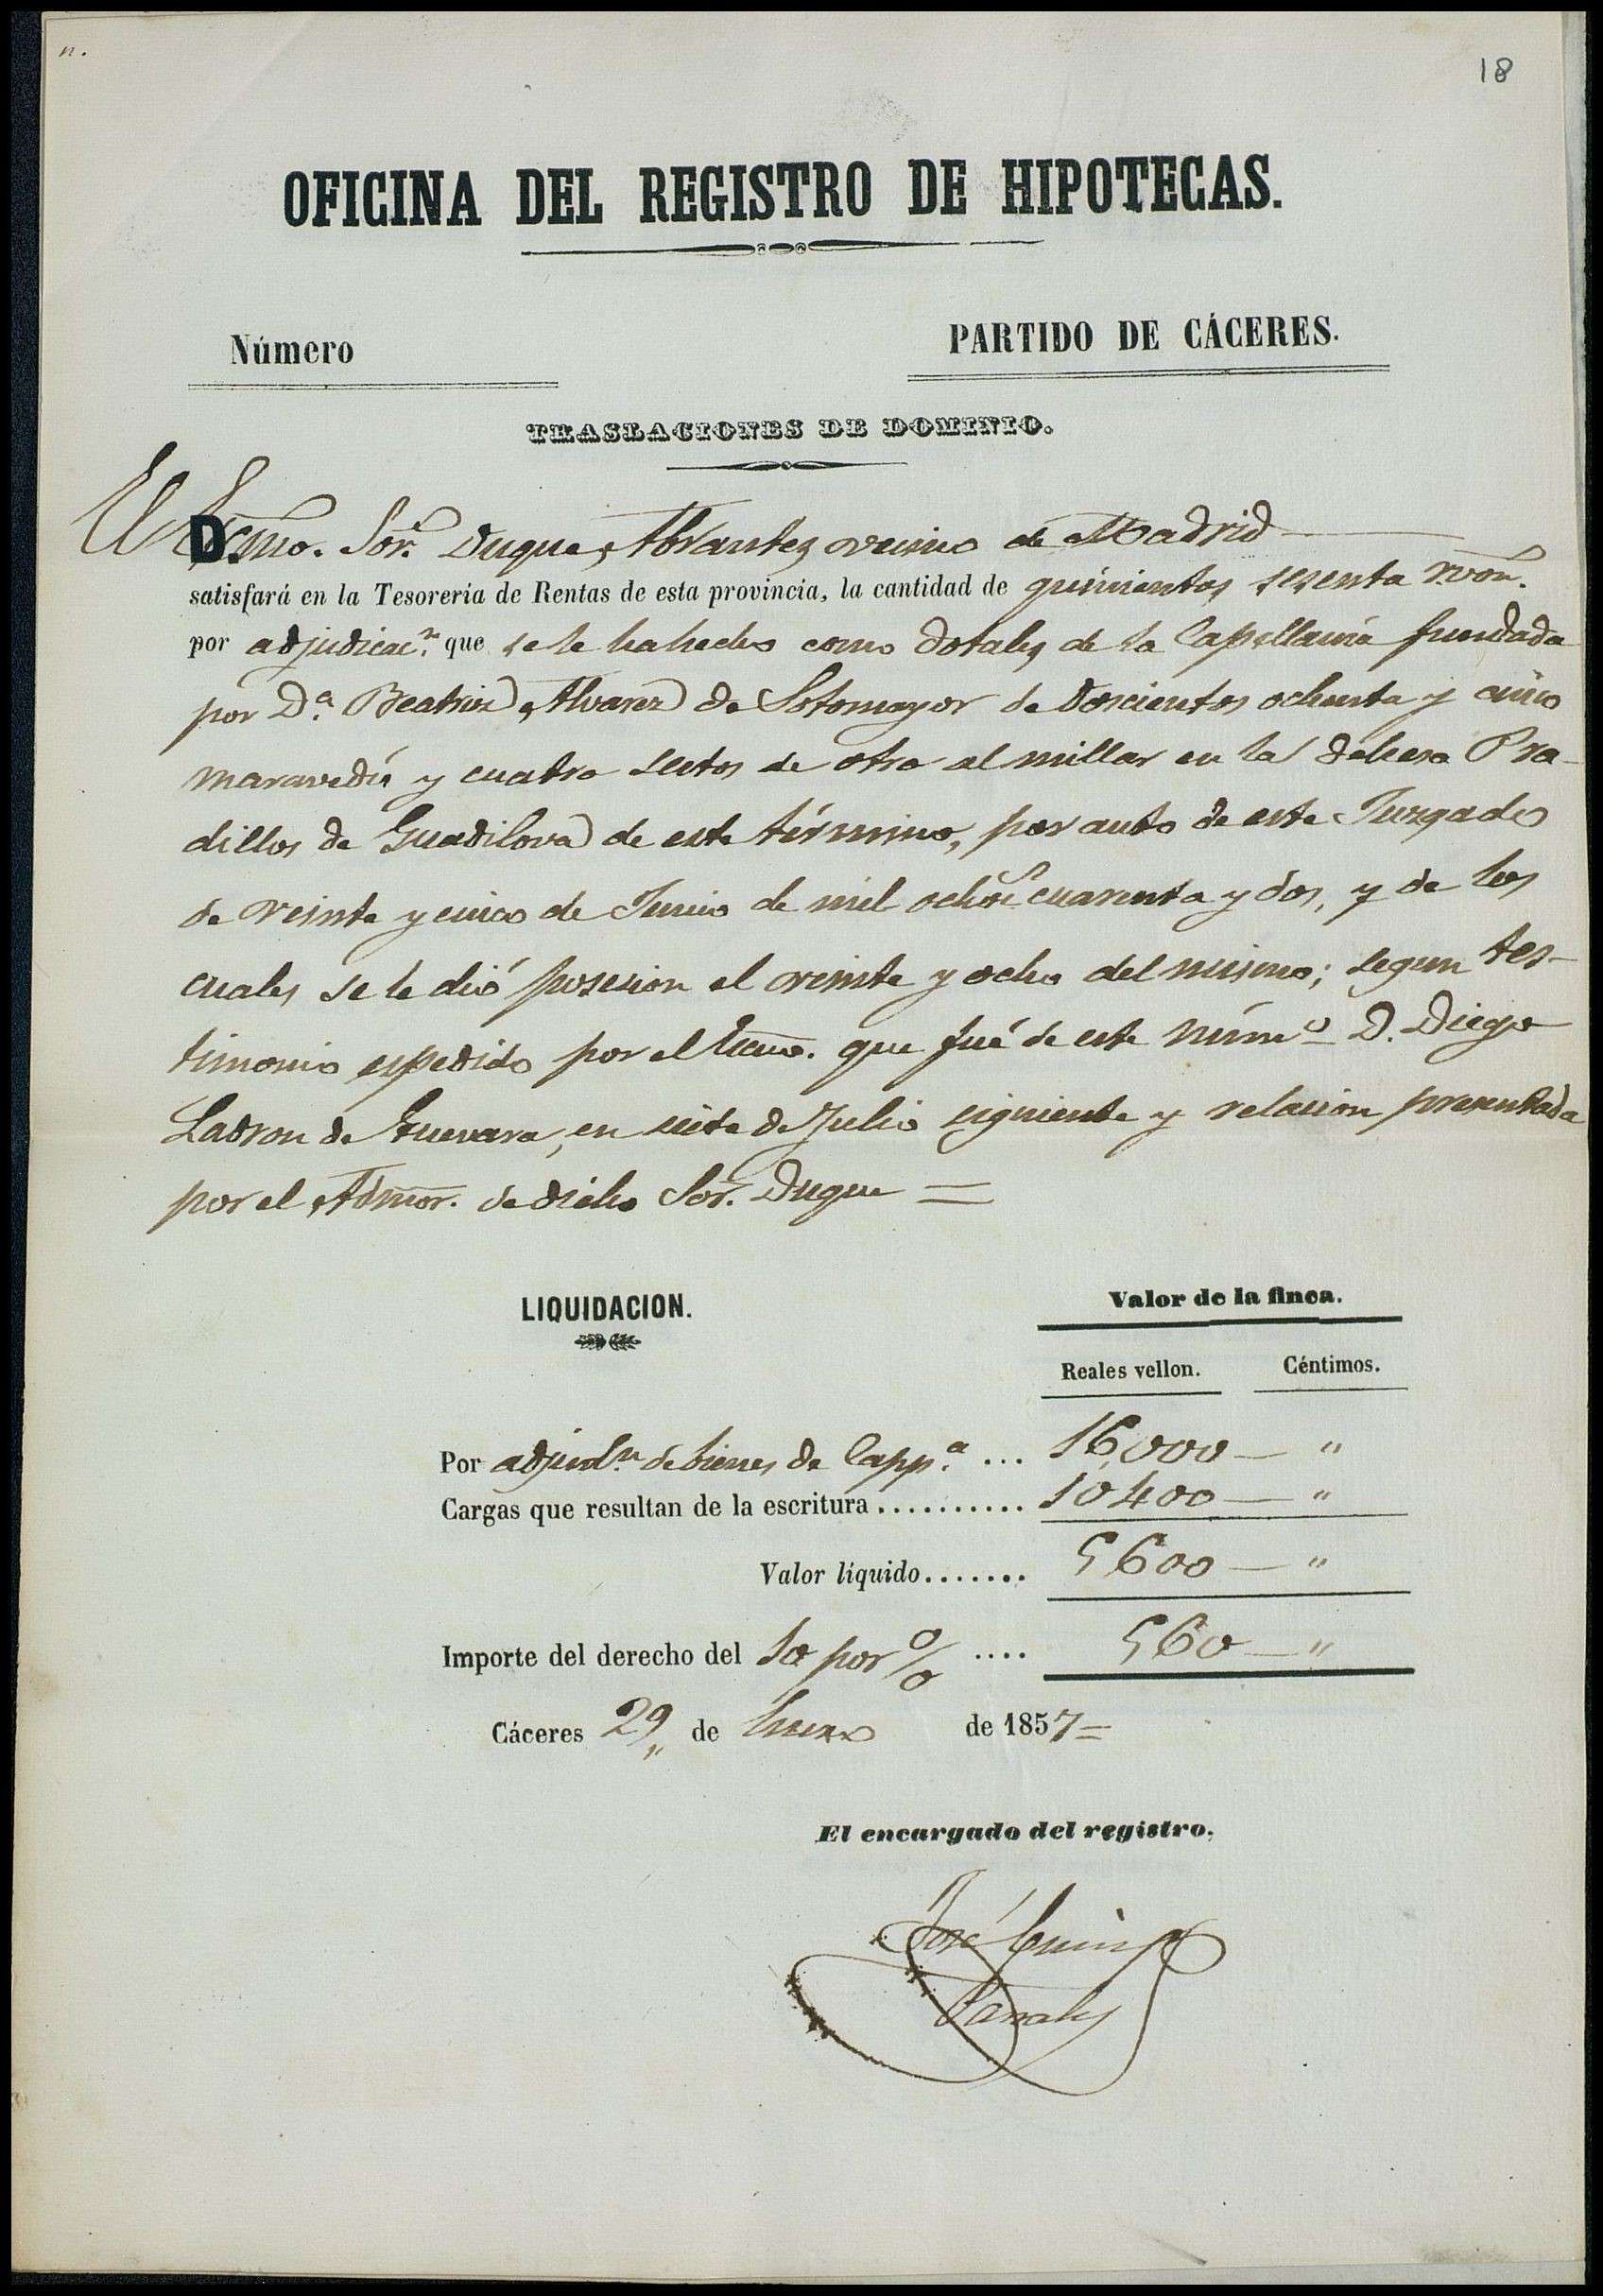 n.
18
OFICINA DEL REGISTRO DE HIPOTECAS.
Número
PARTIDO DE CÁCERES.
TRASLACIONES DE DOMINIO.
El Escmo. Sor. Duque Abrantes vecino de Madrid
satisfará en la Tesorería de Rentas de esta provincia, la cantidad de quinientos sesenta r.von.
por adjudicac.n que se le ha hecho como dotales de la Capellanía fundada
por D.a Beatriz Alvarez de Sotomayor de doscientos ochenta y cinco
maravedís y cuatro sestos de otro al millar en la dehesa Pra-
dillos de Guadilova de este término, por auto de este Juzgado
de veinte y cinco de Junio de mil ochoc. cuarenta y dos, y de los
cuales se le dió posesion el veinte y ocho del mismo; segun tes-
timonio espedido por el Escno. que fué de este núm.o D. Diego
Ladron de Guevara, en siete de Julio siguiente y relacion presentada
por el Admor. de dicho Sor. Duque =
LIQUIDACION.
Valor de la finca.
Reales vellon. Céntimos.
Por adjudn. de bienes de Capp.a ... 16,000 — "
Cargas que resultan de la escritura .......... 10400 — "
Valor líquido....... 5600 — "
Importe del derecho del 10 por % .... 560 — "
Cáceres 29 de Enero de 1857 =
El encargado del registro,
José